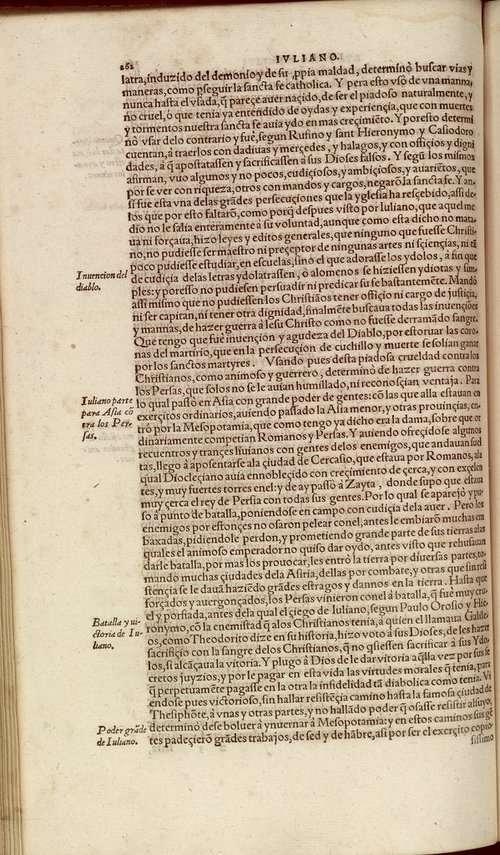 262
IVLIANO.
latra, induzido del demonio y de su ꝓpia maldad, determinò buscar vias y
maneras, como ꝑseguir la sancta fe catholica. Y pera esto vsò de vna manna,
nunca hasta el vsada, q̃ pareçe auer naçido, de ser el piadoso naturalmente, y
no cruel, o que tenia ya entendido de oydas y experiençia, que con muertes
y tormentos nuestra sancta fe auia ydo en mas creçimiẽto. Y por esto determi
nò vsar delo contrario y fuè, segun Rufino y sant Hieronymo y Casiodoro
cuentan, â traerlos con dadiuas y merçedes, y halagos, y con offiçios y digni
dades, â q̃ apostatassen y sacrificassen â sus Dioses falsos. Y segũ los mismos
afirman, vuo algunos y no pocos, cudiçiosos, y ambiçiosos, y auariẽtos, que
por se ver con riqueza, otros con mandos y cargos, negarõ la sancta fe. Y an-
si fue esta vna delas grãdes persecuçiones que la yglesia ha resçebido, assi de-
los que por esto faltarõ, como porq̃ despues visto por Iuliano, que aquel me
dio no le salia enteramente à su voluntad, aunque como esta dicho no mata-
ua ni forçaua, hizo leyes y editos generales, que ninguno que fuesse Christia-
no, no pudiesse ser maestro ni preçeptor de ningunas artes ni sçiençias, ni tã
poco pudiesse estudiar, en escuelas, sino el que adorasse los ydolos, â fin que
Inuencion del
diablo.
de cudiçia delas letras ydolatrassen, ò alomenos se hiziessen ydiotas y sim-
ples: y por esso no pudiesen persuadir ni predicar su fe bastantemẽte. Mandò
assi mismo que no pudiessen los Christiãos tener offiçio ni cargo de justiçia,
ni ser capitan, ni tener otra dignidad, finalmẽte buscaua todas las inuençiões
y mannas, de hazer guerra â Iesu Christo como no fuesse derramãdo sangre.
Que tengo que fuè inuençion y agudeza del Diablo, por estoruar las coro-
nas del martirio, que en la persecuçion de cuchillo y muerte se solian ganar
por los sanctos martyres. Vsando pues desta piadosa crueldad contra los
Christianos, como animoso y guerrero, determinò de hazer guerra contra
los Persas, que solos no se le auian humillado, ni reconosçian ventaja. Para
Iuliano parte
para Asia cõ
tra los Per-
sas.
lo qual passò en Asia con grande poder de gentes: cõ las que alla estauan en
exerçitos ordinarios, auiendo passado la Asia menor, y otras prouinçias, en-
trò por la Mesopotamia, que como tengo ya dicho era la dama, sobre que or
dinariamente competian Romanos y Persas. Y auiendo ofreçidose algunos
recuentros y trançes liuianos con gentes delos enemigos, que andauan suel
tas, llego â aposentarse ala çiudad de Cercasio, que estaua por Romanos, ala
qual Diocleçiano auia ennobleçido con creçimiento de çerca, y con exçelen
tes, y muy fuertes torres enel: y de ay passò â Zayta, donde supo que estaua
muy çerca el rey de Persia con todas sus gentes. Por lo qual se aparejò y pu-
so â punto de batalla, poniendose en campo con cudiçia dela auer. Pero los
enemigos por estonçes no osaron pelear conel, antes le embiarõ muchas em
baxadas, pidiendole perdon, y prometiendo grande parte de sus tierras alas
quales el animoso emperador no quiso dar oydo, antes visto que rehusauan
darle batalla, por mas los prouocar, les entrò la tierra por diuersas partes, to-
mando muchas çiudades dela Asiria, dellas por combate, y otras que sin resi
stençia se le dauã haziẽdo grãdes estragos y dannos en la tierra. Hasta que
forçados y auergonçados, los Persas vinieron conel â batalla, q̃ fuè muy cru-
el y porfiada, antes dela qual el çiego de Iuliano, segun Paulo Orosio y Hie-
Batalla y ui-
ctoria de Iu-
liano.
ronymo, cõ la enemistad q̃ alos Christianos tenia, â quien el llamaua Galile-
os, como Theodorito dize en su historia, hizo voto â sus Dioses, de les hazer
sacrifiçio con la sangre delos Christianos, q̃ no q̃siessen sacrificar â sus Ydo-
los, si alcãçaua la vitoria. Y plugo â Dios de le dar vitoria aq̃lla vez por sus se
cretos juyzios, y por le pagar en esta vida las virtudes morales q̃ tenia, para
q̃ perpetuamẽte pagasse en la otra la infidelidad tã diabolica como tenia. Vi
endose pues victorioso, sin hallar resistẽçia camino hasta la famosa çiudad de
Thesiphõte, â vnas y otras partes, y no hallãdo poder q̃ osasse resistir al suyo,
Poder grãde
de Iuliano.
determinò de se boluer â ynuernar â Mesopotamia: y en estos caminos sus gẽ
tes padeçierõ grãdes trabajos, de sed y de hãbre, asi por ser el exerçito copio-
sissimo